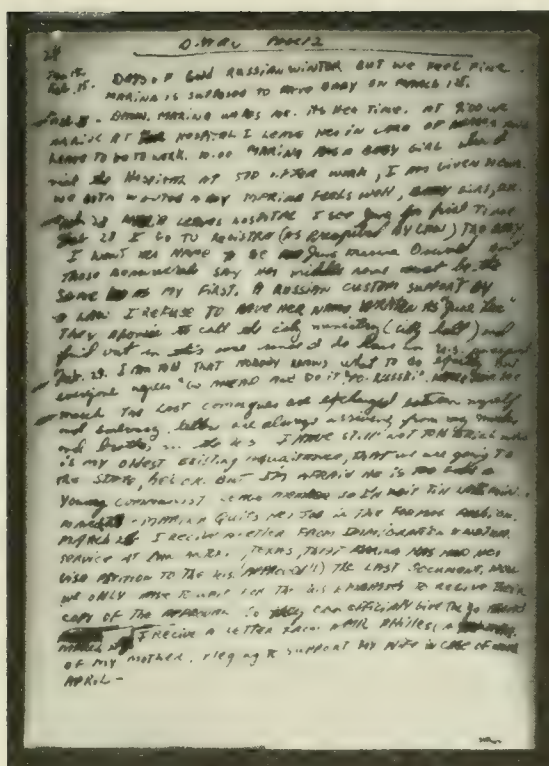 24
Jan 15.
Feb. 15. DAYS OF COLD RUSSIAN WINTER BUT WE FEEL FINE.
MARINA IS SUPPOSED TO HAVE BABY ON MARCH 1st.
DAWN. MARINA WAKES ME. ITS HER TIME. AT 9:00 WE
ARRIVE AT HOSPITAL I LEAVE HER IN CARE OF NURSES AND
LEAVE TO GO TO WORK. 10.00 MARINA HAS A BABY GIRL when I
visit the HOSPITAL AT 500 AFTER WORK, I AM GIVEN NEWS.
WE BOTH WANTED A BOY MARINA FEELS WELL, BABY GIRL, O.K.
LEAVES HOSPITAL I SEE June for first Time
Feb 28 I GO TO REGISTER (AS prescribed BY LAW) THE BABY.
I WANT HER NAME TO BE June Marina Oswald But
THOSE say her middle name must be the
SAME AS MY FIRST. A RUSSIAN CUSTOM SUPPORT BY
A LAW I REFUSE TO HAVE HER NAME WRITTEN AS "June Lee"
THEY to call the city (city hall) and
find out in this case since I do have U.S. passport
Feb. 29. I AM TOLD THAT NOBODY KNOWS what TO DO exactly But
everyone agrees "GO AHEAD AND DO IT"
March THE LAST are exchanged between myself
and letters are always arriving from my mother
and brother in the U.S. I HAVE STILL NOT TOLD who
is my OLDEST EXISTING THAT WE are going TO
THE STATE BUT I'M AFRAID HE IS TOO
YOUNG COMMUNIST LEAGUE member SO I'll WAIT TILL LAST MIN.
MARINA QUITS HER JOB IN THE
MARCH I RECIVE A LETTER FROM IMMIGRATION &
SERVICE AT TEXAS, THAT MARINA HAS HAD HER
VISA TO THE U.S. APPROVED!! THE LAST DOCUMENT, NOW
WE ONLY HAVE TO WAIT FOR THE U.S. TO RECIVE THEIR
COPY OF THE APPROVAL SO they CAN OFFICIALLY GIVE THE GO
MARCH I RECIVE A LETTER FROM A MR. PHILLES, A
OF MY MOTHER, TO SUPPORT MY WIFE IN CASE OF
APRIL-